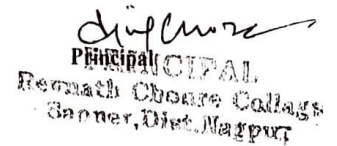 Principal
PRINCIPAL
Revnath Choure Collage
Saoner, Dist. Nagpur